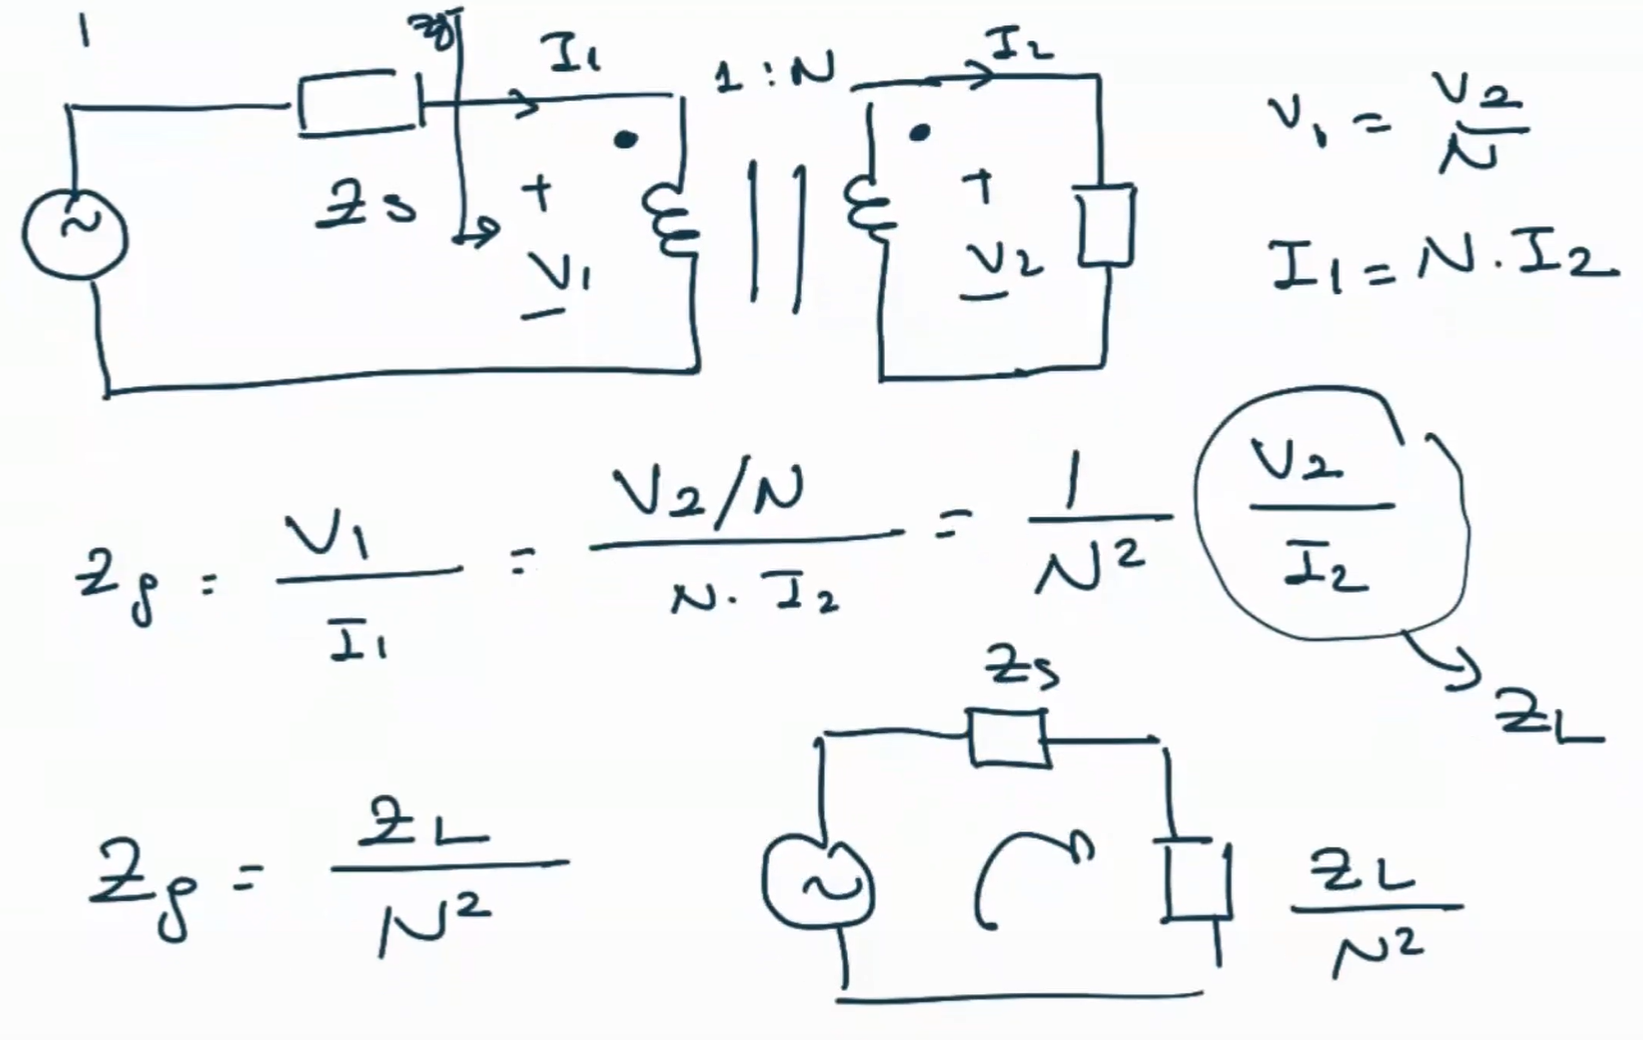 1
Zg
I1
1 : N
I2
Zs
+
V1
-
+
V2
-
V1 = V2/N
I1 = N . I2
Zg = V1/I1 = V2/N / N . I2 = 1/N² V2/I2
ZL
Zg = ZL/N²
Zs
ZL/N²